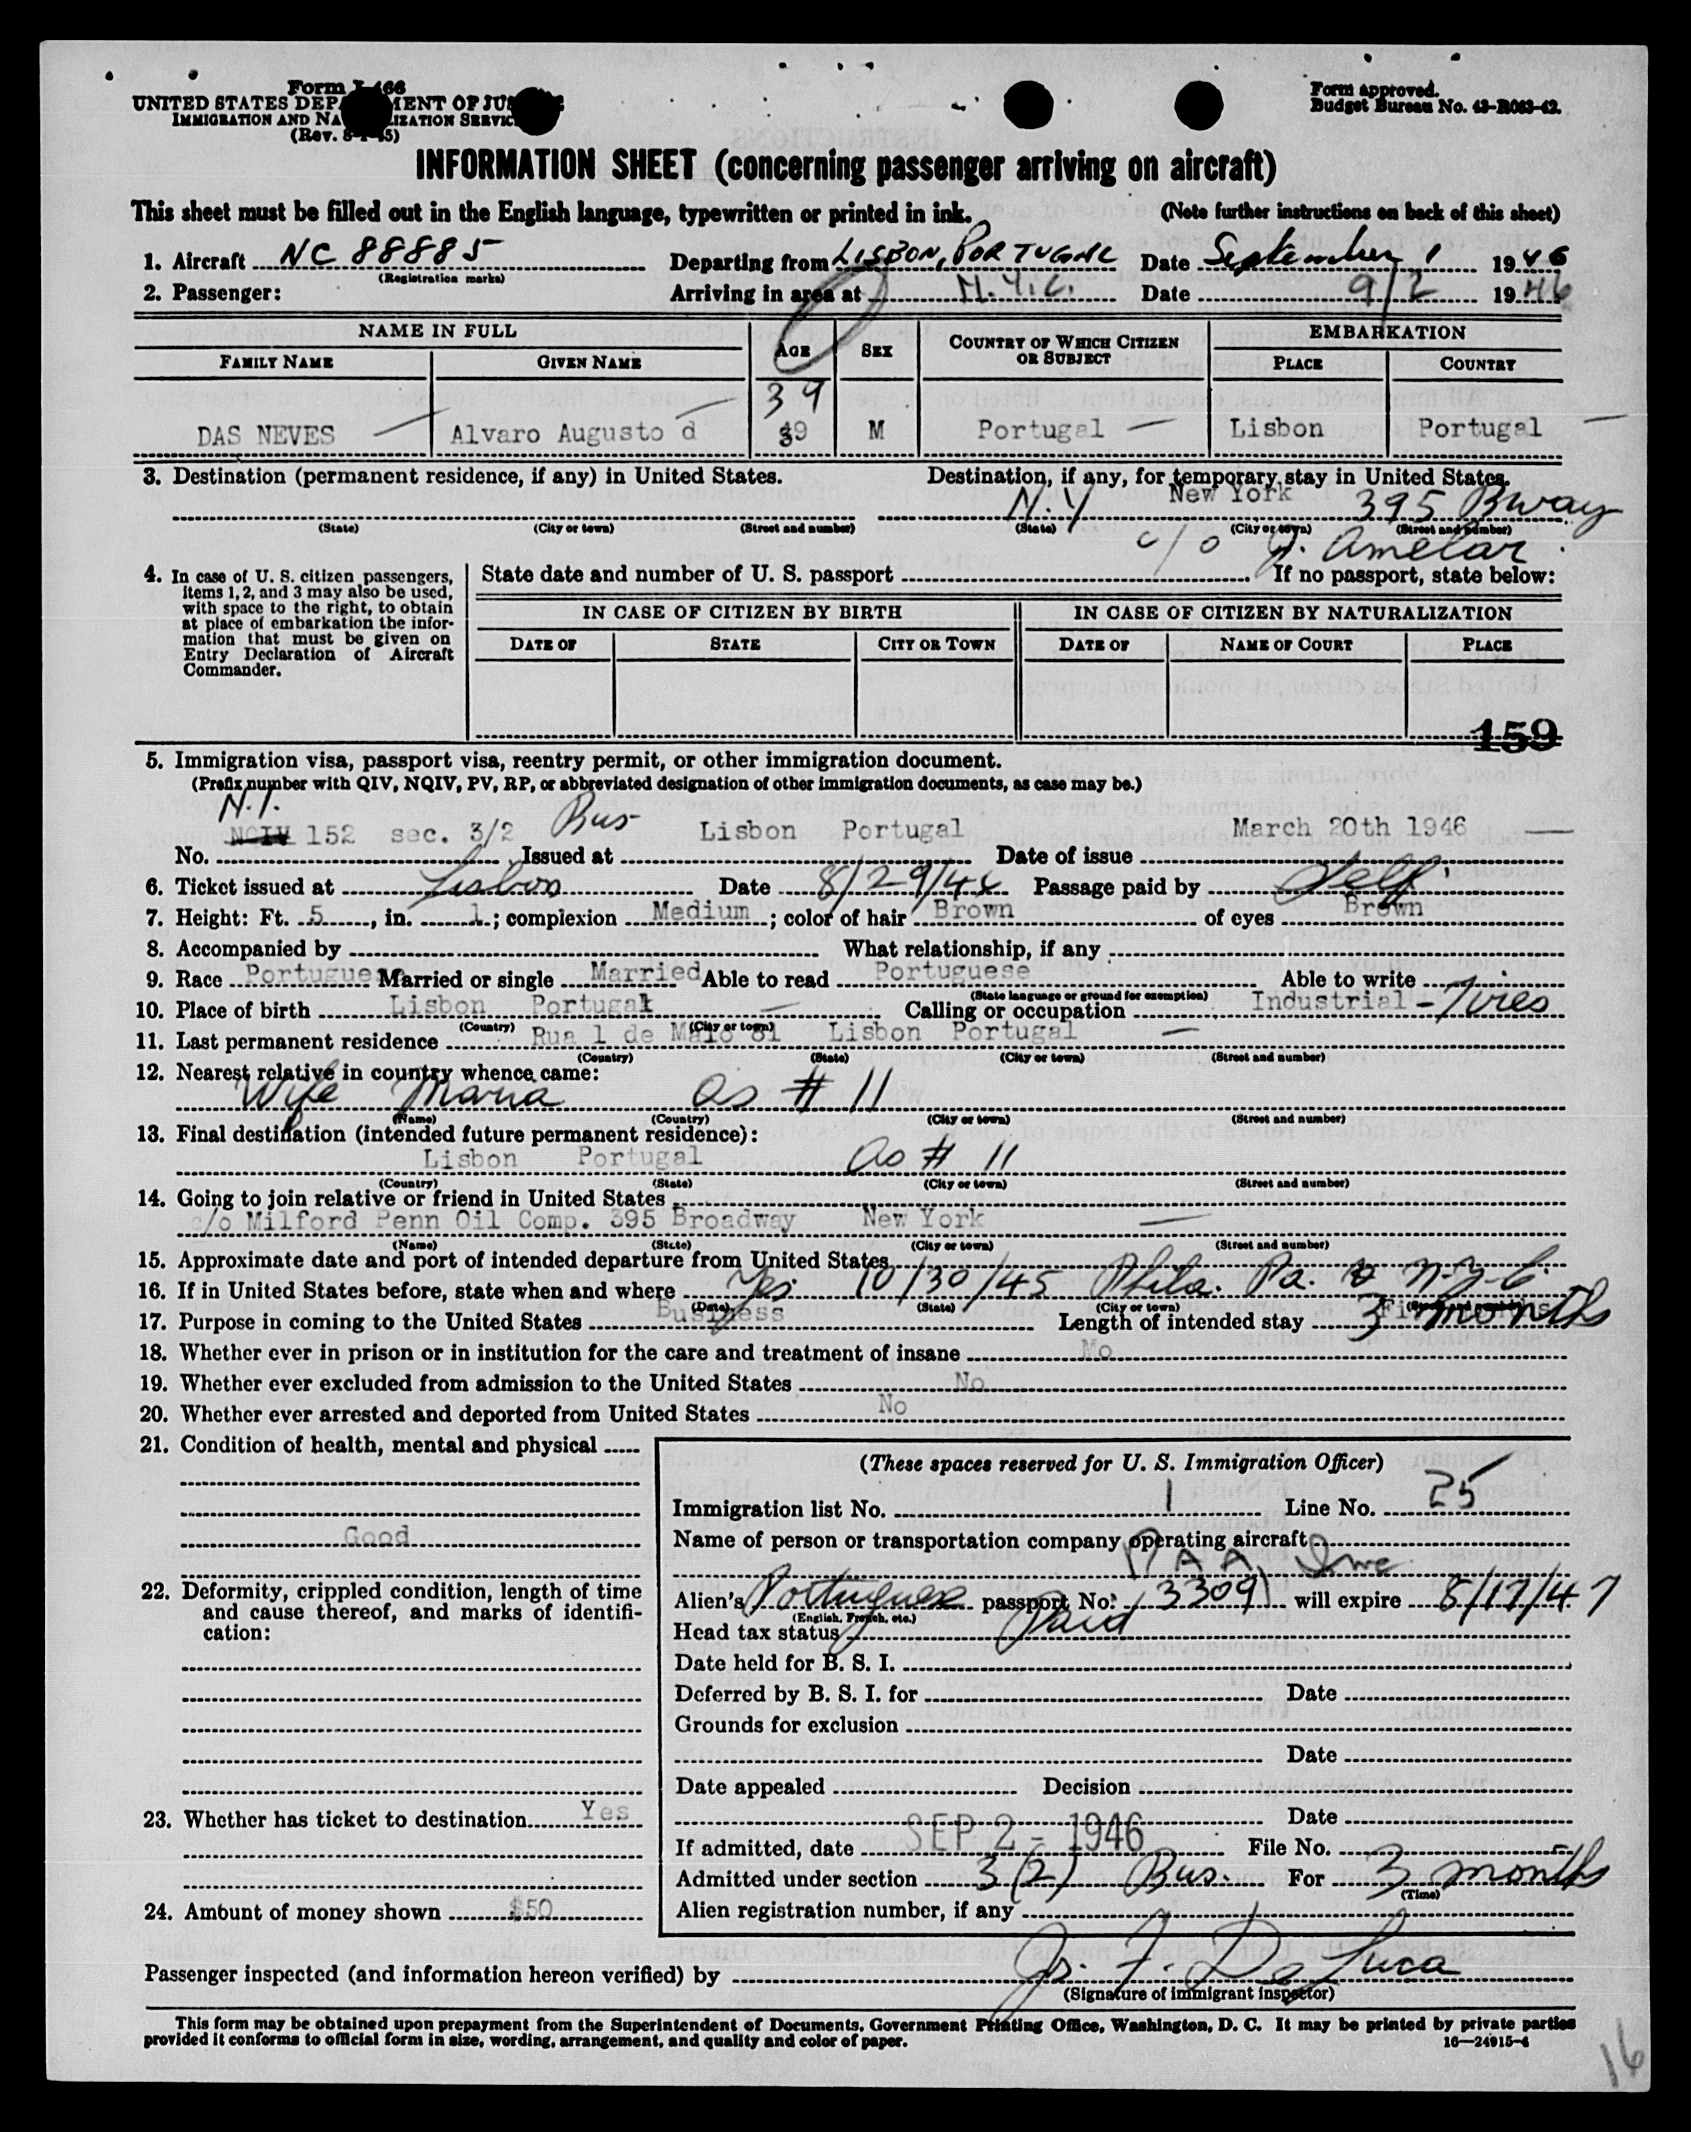 Form I-466
UNITED STATES DEPARTMENT OF JUSTICE
IMMIGRATION AND NATURALIZATION SERVICE
(Rev. 8-1-45)
Form approved.
Budget Bureau No. 43-R083-42.
INFORMATION SHEET (concerning passenger arriving on aircraft)
This sheet must be filled out in the English language, typewritten or printed in ink. (Note further instructions on back of this sheet)
1. Aircraft NC 88885 Departing from LISBON, PORTUGAL Date September 1 1946
(Registration marks)
2. Passenger: Arriving in area at N.Y.C. Date 9/2 1946
NAME IN FULL AGE SEX COUNTRY OF WHICH CITIZEN OR SUBJECT EMBARKATION
FAMILY NAME GIVEN NAME PLACE COUNTRY
39
DAS NEVES Alvaro Augusto d 39 M Portugal Lisbon Portugal
3. Destination (permanent residence, if any) in United States. Destination, if any, for temporary stay in United States.
N.Y New York 395 Bway
(State) (City or town) (Street and number) (State) (City or town) (Street and number)
c/o J. Amelar
4. In case of U. S. citizen passengers, items 1, 2, and 3 may also be used, with space to the right, to obtain at place of embarkation the information that must be given on Entry Declaration of Aircraft Commander.
State date and number of U. S. passport If no passport, state below:
IN CASE OF CITIZEN BY BIRTH IN CASE OF CITIZEN BY NATURALIZATION
DATE OF STATE CITY OR TOWN DATE OF NAME OF COURT PLACE
159
5. Immigration visa, passport visa, reentry permit, or other immigration document.
(Prefix number with QIV, NQIV, PV, RP, or abbreviated designation of other immigration documents, as case may be.)
N.I.
No. NQIV 152 sec. 3/2 Bus Issued at Lisbon Portugal Date of issue March 20th 1946
6. Ticket issued at Lisbon Date 8/29/46 Passage paid by Self
7. Height: Ft. 5, in. 1; complexion Medium; color of hair Brown of eyes Brown
8. Accompanied by What relationship, if any
9. Race Portuguese Married or single Married Able to read Portuguese Able to write
(State language or ground for exemption)
10. Place of birth Lisbon Portugal Calling or occupation Industrial - Tires
(Country) (City or town)
11. Last permanent residence Rua 1 de Maio 81 Lisbon Portugal
(Country) (State) (City or town) (Street and number)
12. Nearest relative in country whence came:
Wife Maria as # 11
(Name) (Country) (City or town) (Street and number)
13. Final destination (intended future permanent residence):
Lisbon Portugal as # 11
(Country) (State) (City or town) (Street and number)
14. Going to join relative or friend in United States
c/o Milford Penn Oil Comp. 395 Broadway New York
(Name) (State) (City or town) (Street and number)
15. Approximate date and port of intended departure from United States
16. If in United States before, state when and where Yes 10/30/45 Phila. Pa. N.Y.C.
(Date) (State) (City or town) (Street and number)
17. Purpose in coming to the United States Business Length of intended stay 3 months
18. Whether ever in prison or in institution for the care and treatment of insane No
19. Whether ever excluded from admission to the United States No
20. Whether ever arrested and deported from United States No
21. Condition of health, mental and physical
Good
22. Deformity, crippled condition, length of time and cause thereof, and marks of identification:
23. Whether has ticket to destination Yes
24. Amount of money shown $50
(These spaces reserved for U. S. Immigration Officer)
Immigration list No. 1 Line No. 25
Name of person or transportation company operating aircraft
P A A Inc
Alien's Portuguese passport No. 3309 will expire 8/17/47
(English, French, etc.)
Head tax status Paid
Date held for B. S. I.
Deferred by B. S. I. for Date
Grounds for exclusion
Date
Date appealed Decision
Date
If admitted, date SEP 2 - 1946 File No.
Admitted under section 3(2) Bus. For 3 months
(Time)
Alien registration number, if any
Passenger inspected (and information hereon verified) by Js. F. DeLuca
(Signature of immigrant inspector)
This form may be obtained upon prepayment from the Superintendent of Documents, Government Printing Office, Washington, D. C. It may be printed by private parties
provided it conforms to official form in size, wording, arrangement, and quality and color of paper. 16—24915-4
16